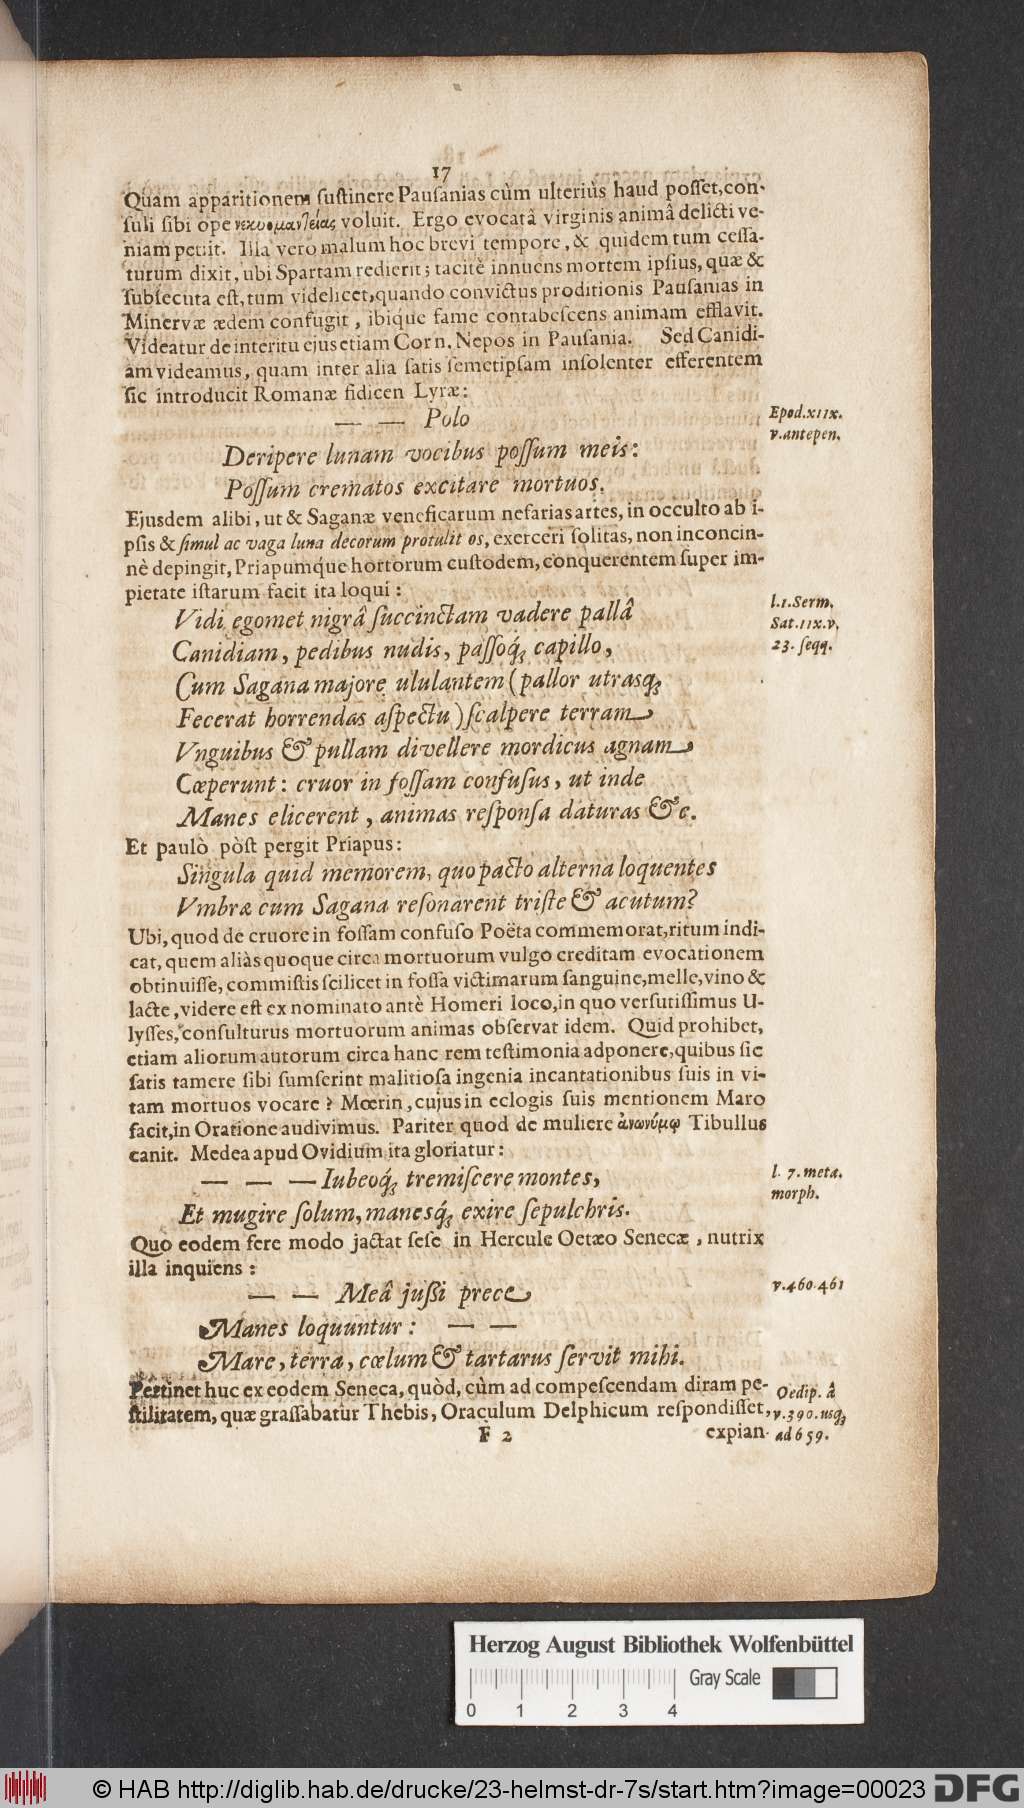 17
Quam apparitionem ſuſtinere Pauſanias cùm ulteriùs haud poſſet, con-
ſuli ſibi ope νεκυομαντείας voluit. Ergo evocatâ virginis animâ delicti ve-
niam petiit. Illa vero malum hoc brevi tempore, & quidem tum ceſſa-
turum dixit, ubi Spartam redierit; tacitè innuens mortem ipſius, quæ &
ſubſecuta eſt, tum videlicet, quando convictus proditionis Pauſanias in
Minervæ ædem confugit, ibique fame contabeſcens animam efflavit.
Videatur de interitu ejus etiam Corn. Nepos in Pauſania. Sed Canidi-
am videamus, quam inter alia ſatis ſemetipſam inſolenter efferentem
ſic introducit Romanæ fidicen Lyræ:
— — Polo
Epod. XIIX.
v. antepen.
Deripere lunam vocibus poſſum meis:
Poſſum crematos excitare mortuos.
Ejusdem alibi, ut & Saganæ veneficarum nefarias artes, in occulto ab i-
pſis & ſimul ac vaga luna decorum protulit os, exerceri ſolitas, non inconcin-
nè depingit, Priapumque hortorum cuſtodem, conquerentem ſuper im-
pietate iſtarum facit ita loqui:
Vidi egomet nigrâ ſuccinctam vadere pallâ
l. 1. Serm.
Sat. IIX. v.
23. ſeqq.
Canidiam, pedibus nudis, paſſoq́; capillo,
Cum Sagana majore ululantem (pallor utrasq;
Fecerat horrendas aſpectu) ſcalpere terram
Vnguibus & pullam divellere mordicus agnam
Cœperunt: cruor in foſſam confuſus, ut inde
Manes elicerent, animas reſponſa daturas &c.
Et paulò pòſt pergit Priapus:
Singula quid memorem, quo pacto alterna loquentes
Vmbræ cum Sagana reſonarent triſte & acutum?
Ubi, quod de cruore in foſſam confuſo Poëta commemorat, ritum indi-
cat, quem aliàs quoque circa mortuorum vulgo creditam evocationem
obtinuiſſe, commiſtis ſcilicet in foſſa victimarum ſanguine, melle, vino &
lacte, videre eſt ex nominato antè Homeri loco, in quo verſutiſſimus U-
lyſſes, conſulturus mortuorum animas obſervat idem. Quid prohibet,
etiam aliorum autorum circa hanc rem teſtimonia adponere, quibus ſic
ſatis tamere ſibi ſumſerint malitioſa ingenia incantationibus ſuis in vi-
tam mortuos vocare? Mœrin, cujus in eclogis ſuis mentionem Maro
facit, in Oratione audivimus. Pariter quod de muliere ἀνωνύμῳ Tibullus
canit. Medea apud Ovidium ita gloriatur:
— — — Iubeoq́; tremiſcere montes,
l. 7. meta.
morph.
Et mugire ſolum, manesq́; exire ſepulchris.
Quo eodem fere modo jactat ſeſe in Hercule Oetæo Senecæ, nutrix
illa inquiens:
— — Meâ juſsi prece
v. 460. 461
Manes loquuntur: — —
Mare, terra, cœlum & tartarus ſervit mihi.
Pertinet huc ex eodem Seneca, quòd, cùm ad compeſcendam diram pe-
ſtilitatem, quæ graſſabatur Thebis, Oraculum Delphicum reſpondiſſet,
Oedip. â
v. 390. usq;
ad 659.
F 2 expian-
Herzog August Bibliothek Wolfenbüttel
Gray Scale
0 1 2 3 4
© HAB http://diglib.hab.de/drucke/23-helmst-dr-7s/start.htm?image=00023 DFG